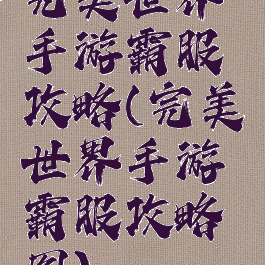 完美世界
手游霸服
攻略(完美
世界手游
霸服攻略
图)